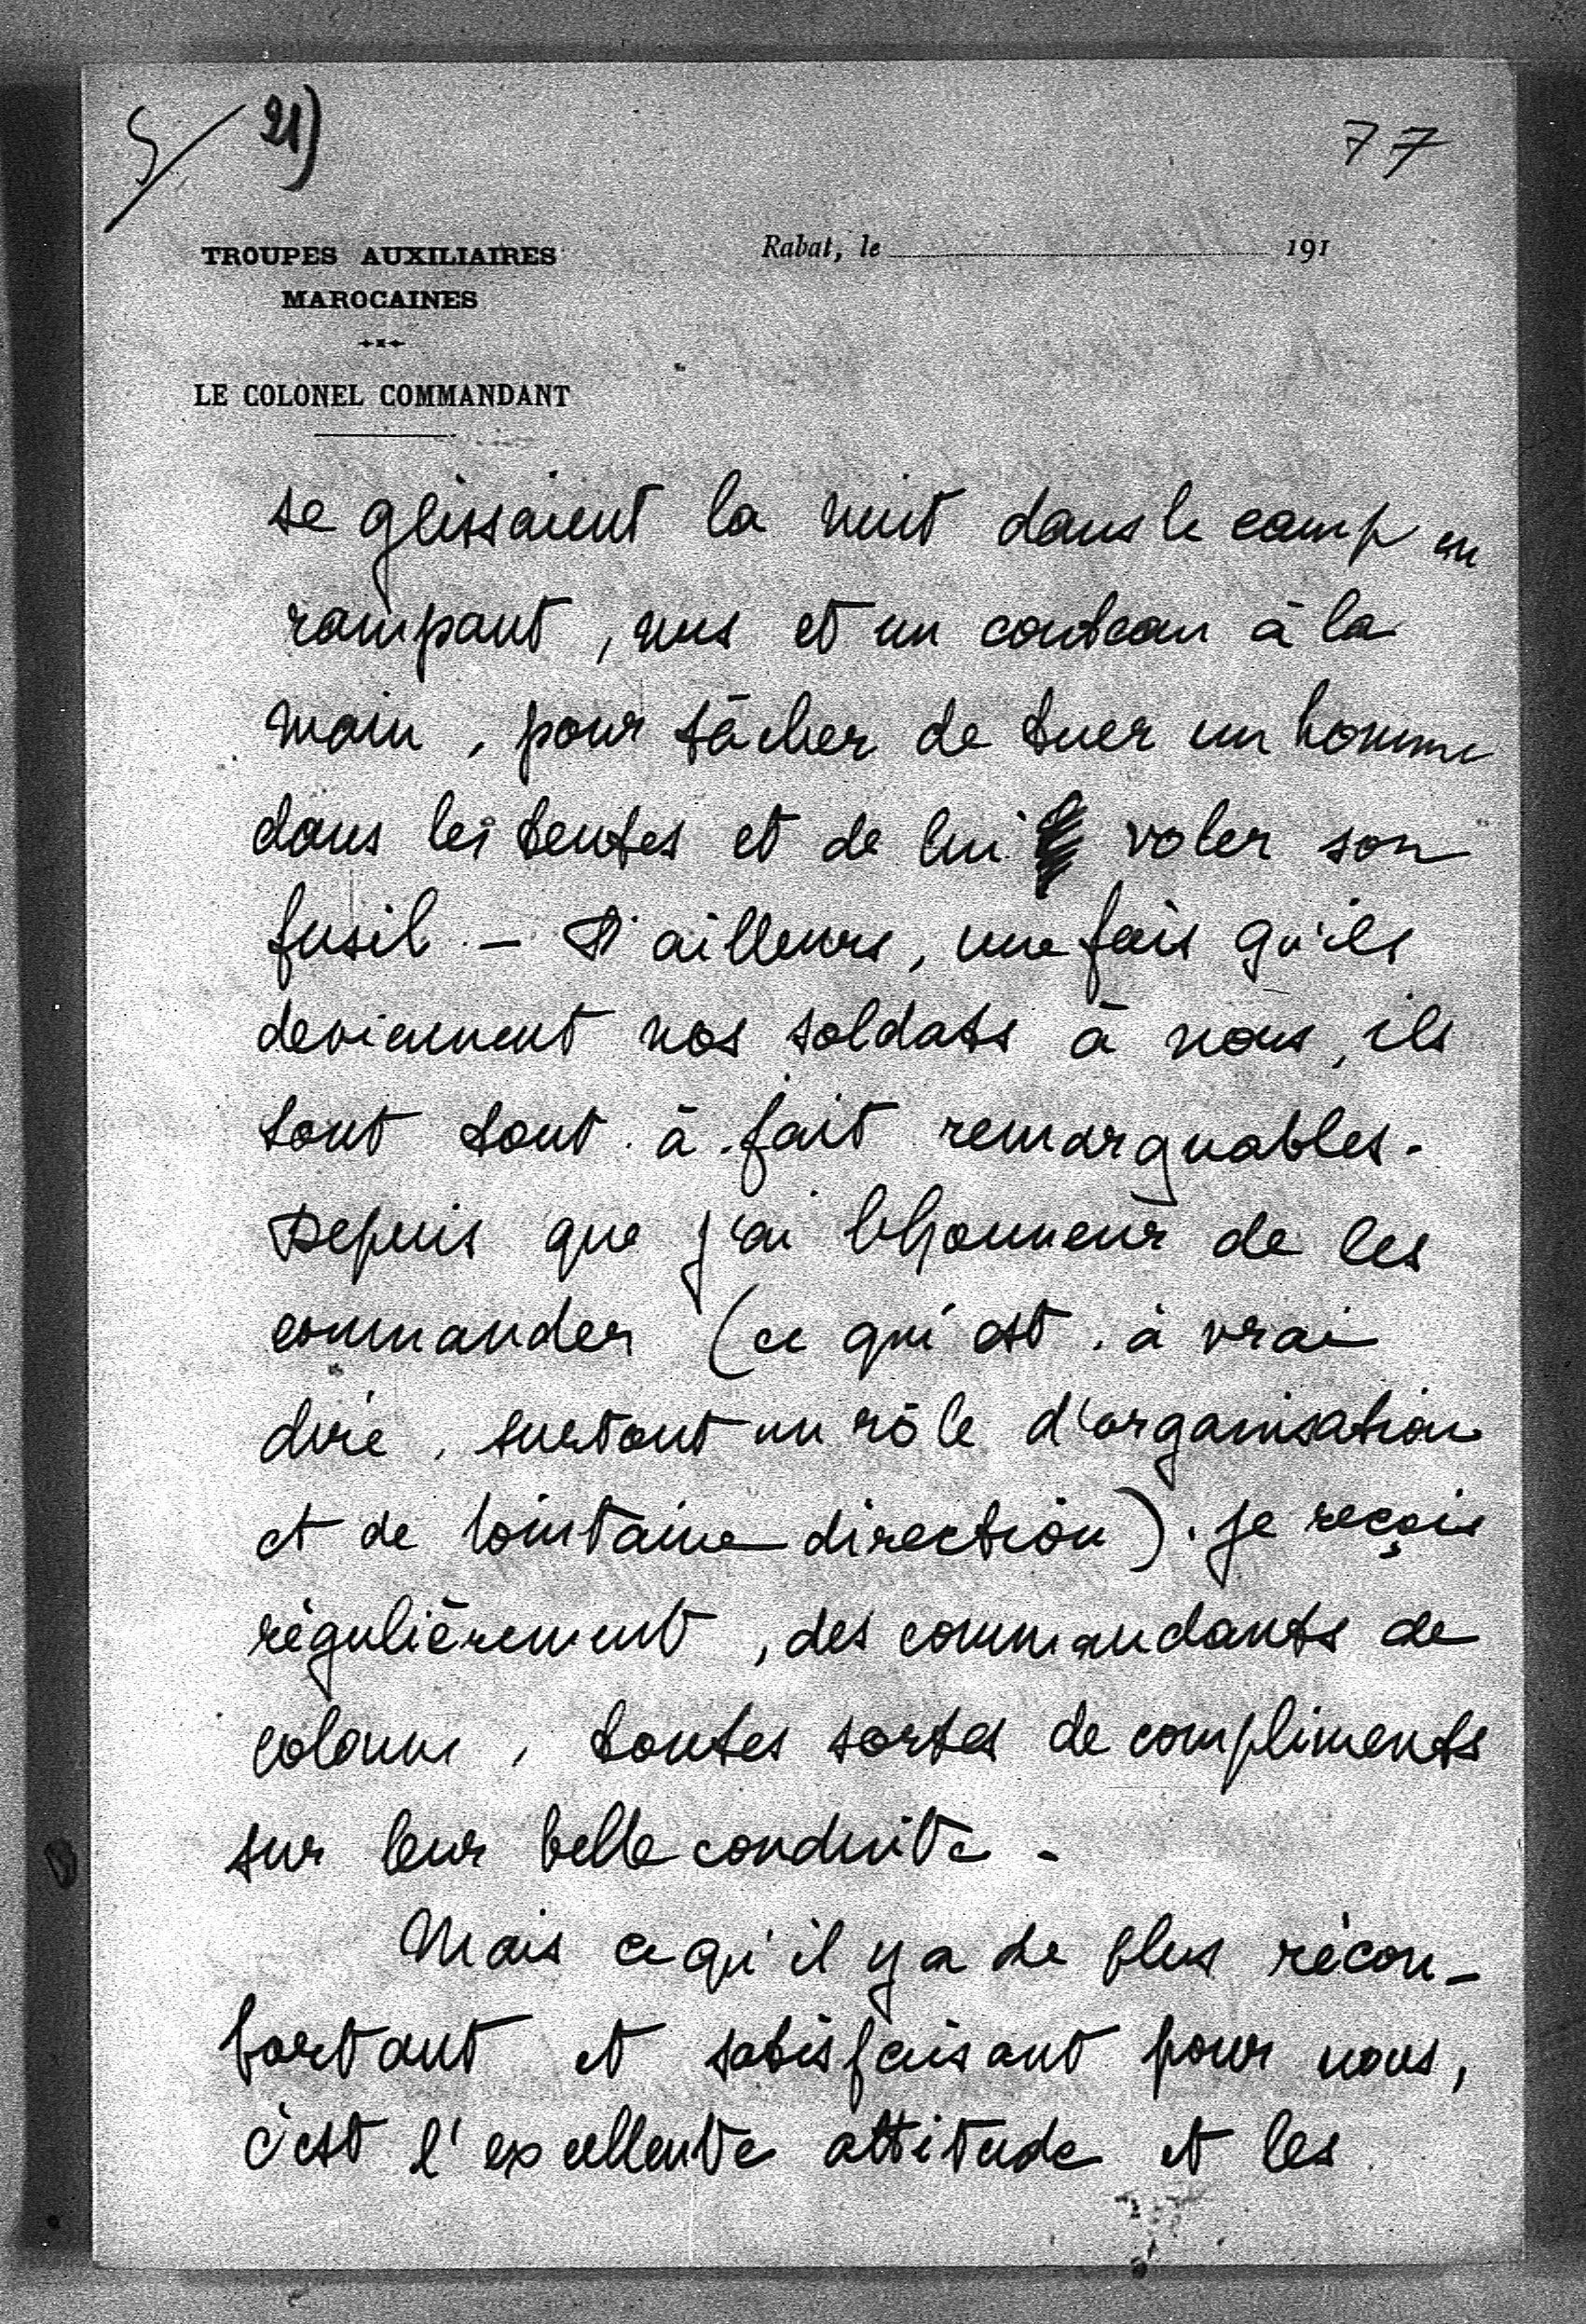 5/ 21) 77
TROUPES AUXILIAIRES
MAROCAINES
LE COLONEL COMMANDANT
Rabat, le 191
se glissaient la nuit dans le camp en
rampant, nus et un couteau à la
main, pour tâcher de tuer un homme
dans les tentes et de lui voler son
fusil. — D'ailleurs, une fois qu'ils
deviennent nos soldats à nous, ils
sont tout à fait remarquables.
Depuis que j'ai l'honneur de les
commander (ce qui est, à vrai
dire, surtout un rôle d'organisation
et de lointaine direction). je reçois
régulièrement, des commandants de
colonne, toutes sortes de compliments
sur leur belle conduite -
Mais ce qu'il y a de plus récon-
fortant et satisfaisant pour nous,
c'est l'excellente attitude et les